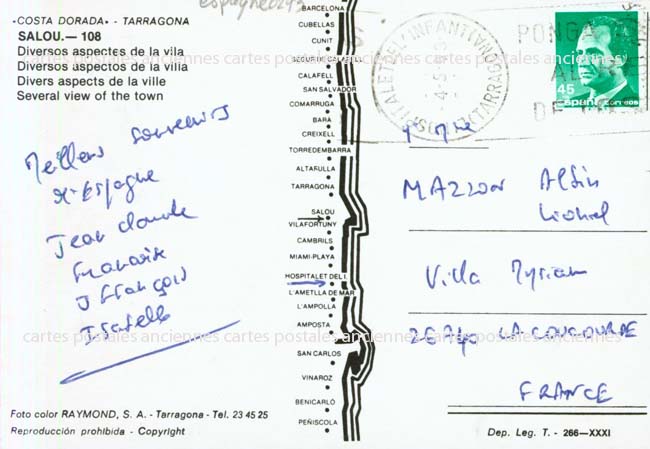 espagne0293
•COSTA DORADA• - TARRAGONA
SALOU.— 108
Diversos aspectes de la vila
Diversos aspectos de la villa
Divers aspects de la ville
Several view of the town
Meilleurs souvenirs
d'Espagne
Jean Claude
Françoise
J François
Isabelle
BARCELONA
CUBELLAS
CUNIT
SEGUR DE CALAFELL
CALAFELL
SAN SALVADOR
COMARRUGA
BARÁ
CREIXELL
TORREDEMBARRA
ALTAFULLA
TARRAGONA
SALOU
VILAFORTUNY
CAMBRILS
MIAMI-PLAYA
HOSPITALET DEL I.
L'AMETLLA DE MAR
L'AMPOLLA
AMPOSTA
SAN CARLOS
VINAROZ
BENICARLÓ
PEÑISCOLA
HOSPITALET DEL INFANT (TARRAGONA)
PONGA
AL
DE
45
España
correos
MAZZON
Lionel
Villa Myriam
26740 LA COUCOURDE
FRANCE
cartes postales anciennes cartes postales anciennes cartes postales anciennes
Foto color RAYMOND, S. A. - Tarragona - Tel. 23 45 25
Reproducción prohibida - Copyright
Dep. Leg. T. - 266—XXXI